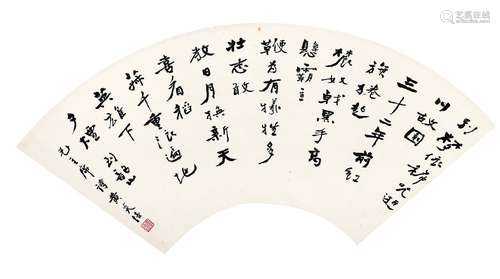 别梦依稀咒逝
川故園
三十二年前红
旗卷起
農奴戟黑手高
悬霸主
鞭为有犧牲多
壮志敢
教日月换新天
喜看稻
菽千重浪遍地
英雄下
夕烟 到韶山
毛主席詩 黄天